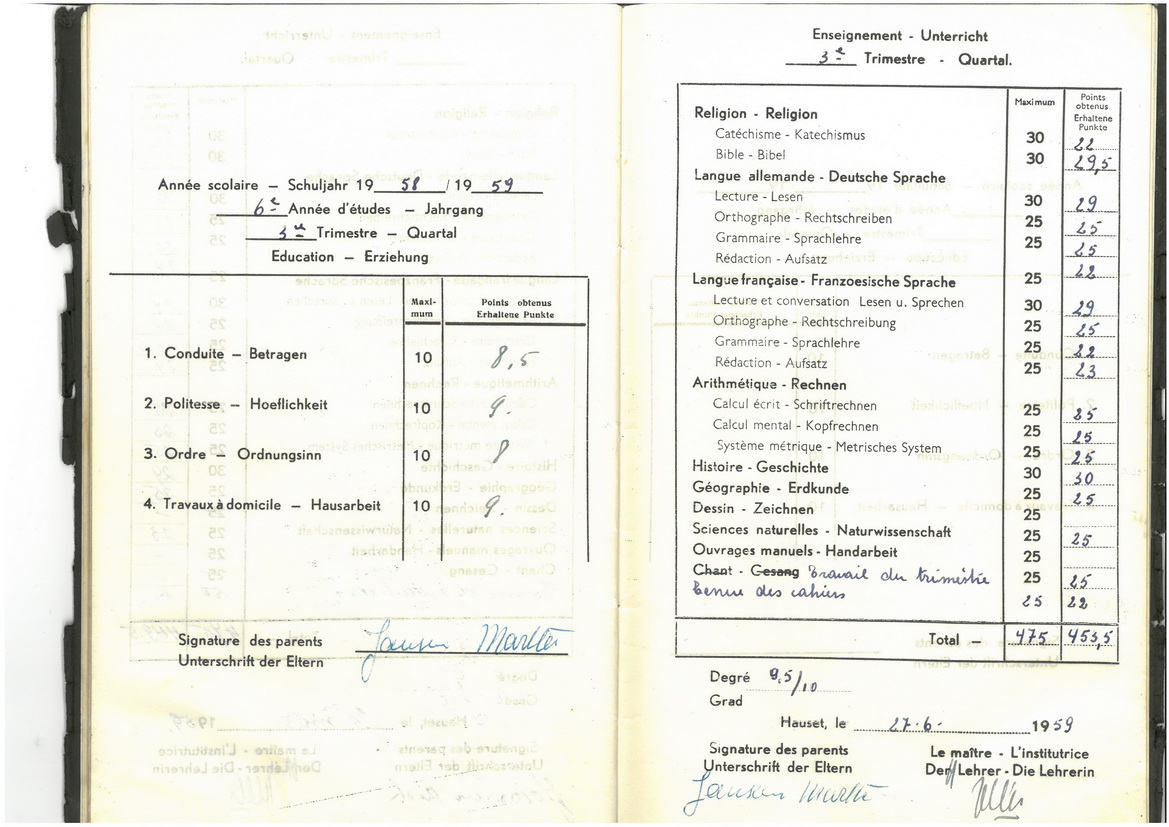 Année scolaire — Schuljahr 19 58 / 19 59
6e Année d'études — Jahrgang
3e Trimestre — Quartal
Education — Erziehung
Maxi-mum Points obtenus Erhaltene Punkte
1. Conduite — Betragen 10 8,5
2. Politesse — Hoeflichkeit 10 9.
3. Ordre — Ordnungsinn 10 8
4. Travaux à domicile — Hausarbeit 10 9.
Signature des parents
Unterschrift der Eltern
Enseignement - Unterricht
3e Trimestre - Quartal.
Maximum Points obtenus Erhaltene Punkte
Religion - Religion
Catéchisme - Katechismus 30 22
Bible - Bibel 30 29,5
Langue allemande - Deutsche Sprache
Lecture - Lesen 30 29
Orthographe - Rechtschreiben 25 25
Grammaire - Sprachlehre 25 25
Rédaction - Aufsatz 22
Langue française - Franzoesische Sprache 25
Lecture et conversation Lesen u. Sprechen 30 29
Orthographe - Rechtschreibung 25 25
Grammaire - Sprachlehre 25 22
Rédaction - Aufsatz 25 23
Arithmétique - Rechnen
Calcul écrit - Schriftrechnen 25 25
Calcul mental - Kopfrechnen 25 25
Système métrique - Metrisches System 25 25
Histoire - Geschichte 30 30
Géographie - Erdkunde 25 25
Dessin - Zeichnen 25
Sciences naturelles - Naturwissenschaft 25 25
Ouvrages manuels - Handarbeit 25
Chant - Gesang Travail du trimestre 25 25
Tenue des cahiers 25 22
Total — 475 453,5
Degré 9,5/10
Grad
Hauset, le 27-6- 1959
Signature des parents Le maître - L'institutrice
Unterschrift der Eltern Der Lehrer - Die Lehrerin